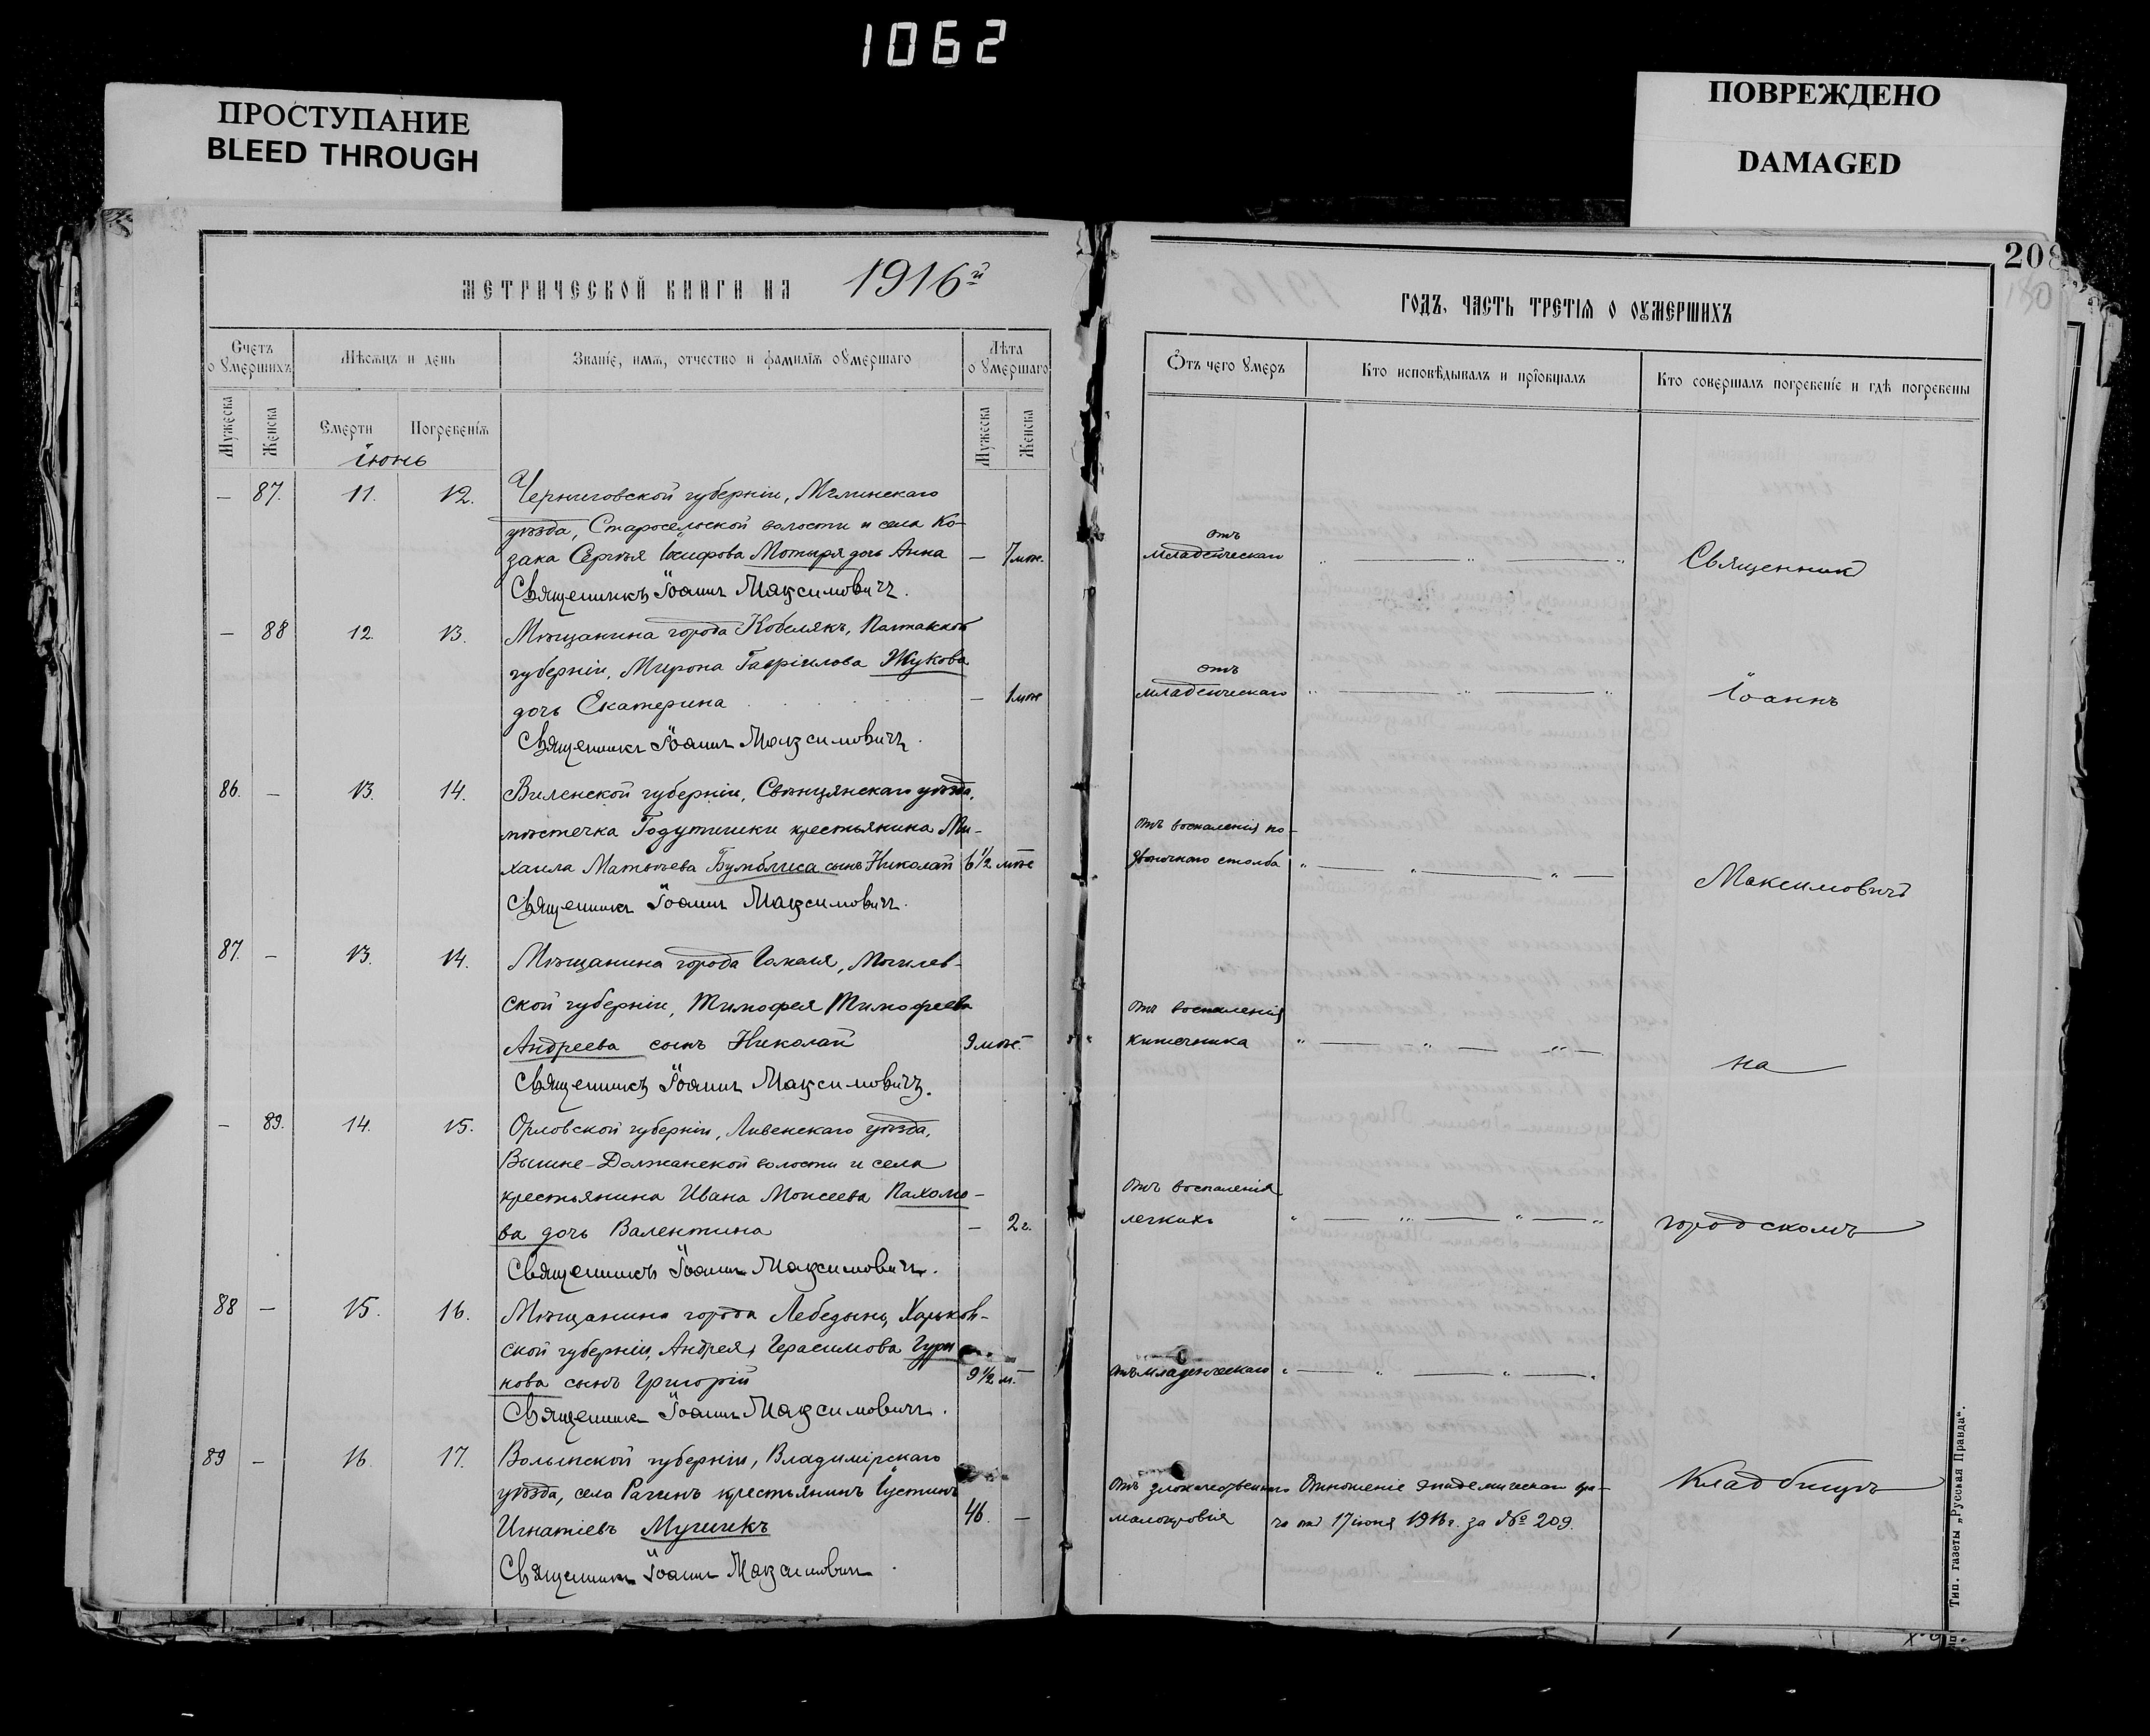 1062
ПРОСТУПАНИЕ
BLEED THROUGH
ПОВРЕЖДЕНО
DAMAGED
208
МЕТРИЧЕСКОЙ КНИГИ НА 1916й
ГОДЪ, ЧАСТЬ ТРЕТІѦ О ОУМЕРШИХЪ
Счетъ о умершихъ
Мѣсѧцъ и день
Званіе, имѧ, отчество и фамиліѧ оумершаго
Лѣта оумершаго
Ѿтъ чего умеръ
Кто исповѣдывалъ и пріобщалъ
Кто совершалъ погребеніе и гдѣ погребены
Мужеска
Женска
Смерти
Погребеніѧ
Мужеска
Женска
іюнь
— 87. 11. 12. Черниговской губерніи, Мглинскаго
уѣзда, Старосельской волости и села Ко-
зака Сергѣя Іосифова Мотыря дочь Анна — 7 мѣс.
отъ
младенческаго
Священникъ Іоаннъ Максимовичъ.
— 88 12. 13. Мѣщанина города Кобелякъ, Полтавской
губерніи, Мирона Гавріилова Жукова
дочь Екатерина — 1 мѣс
отъ
младенческаго
Священникъ Іоаннъ Максимовичъ.
86. — 13. 14. Виленской губерніи, Свѣнцянскаго уѣзда,
мѣстечка Годутишки крестьянина Ми-
хаила Матѳѣева Бумблиса сынъ Николай 6 1/2 мѣс
отъ воспаленія по-
звоночнаго столба
Священникъ Іоаннъ Максимовичъ.
87. — 13. 14. Мѣщанина города Гомеля, Могилев-
ской губерніи, Тимофея Тимофеева
Андреева сынъ Николай 9 мѣс.
отъ воспаленія
кишечника
Священникъ Іоаннъ Максимовичъ.
— 89. 14. 15. Орловской губерніи, Ливенскаго уѣзда,
Вышне-Должанской волости и села
крестьянина Ивана Моисеева Пахомо-
ва дочь Валентина — 2 г.
отъ воспаленія
легкихъ
Священникъ Іоаннъ Максимовичъ.
88 — 15. 16. Мѣщанина города Лебедына, Харьков-
ской губерніи, Андрея Герасимова
нова сынъ Григорій 9 1/2 м.
отъ младенческаго
Священникъ Іоаннъ Максимовичъ.
89 — 16. 17. Волынской губерніи, Владимірскаго
уѣзда, села Рачинъ крестьянинъ Іустинъ
Игнатіевъ Мучикъ 46. —
отъ злокачественнаго
малокровія
Отношеніе эпидемическаго вра-
ча отъ 17 іюня 1916 г. за № 209.
Священникъ Іоаннъ Максимовичъ
Священникъ
Іоаннъ
Максимовичъ
на
городскомъ
кладбищѣ
Тип. газеты „Русская Правда“.